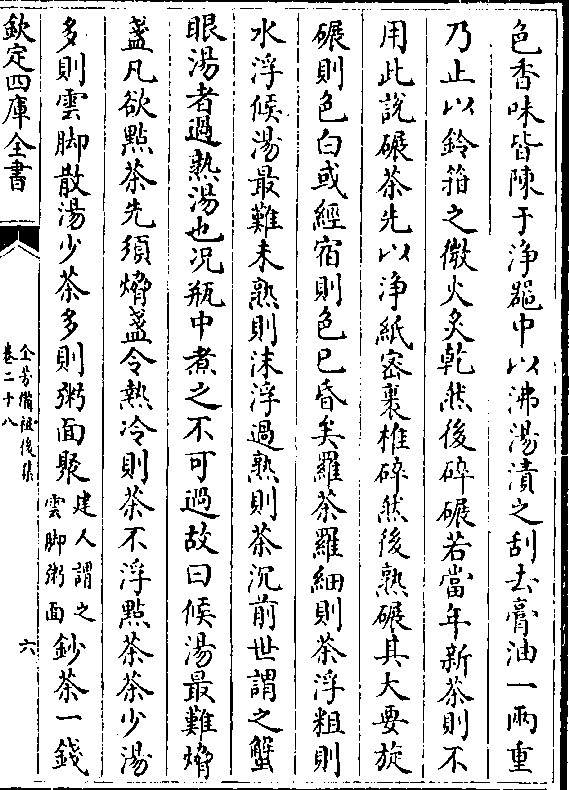 色香味皆陳于淨器中以沸湯漬之刮去膏油一兩重
乃止以鈴箝之微火炙乾然後碎碾若當年新茶則不
用此說碾茶先以淨紙密裹椎碎然後熟碾其大要旋
碾則色白或經宿則色已昏矣羅茶羅細則茶浮粗則
水浮候湯最難未熟則沫浮過熟則茶沉前世謂之蟹
眼湯者過熟湯也况瓶中煮之不可過故曰候湯最難熁
盞凡欲點茶先須熁盞令熱冷則茶不浮點茶茶少湯
多則雲脚散湯少茶多則粥面聚建人謂之雲脚粥面鈔茶一錢
欽定四庫全書
全芳備祖後集
卷二十八
六